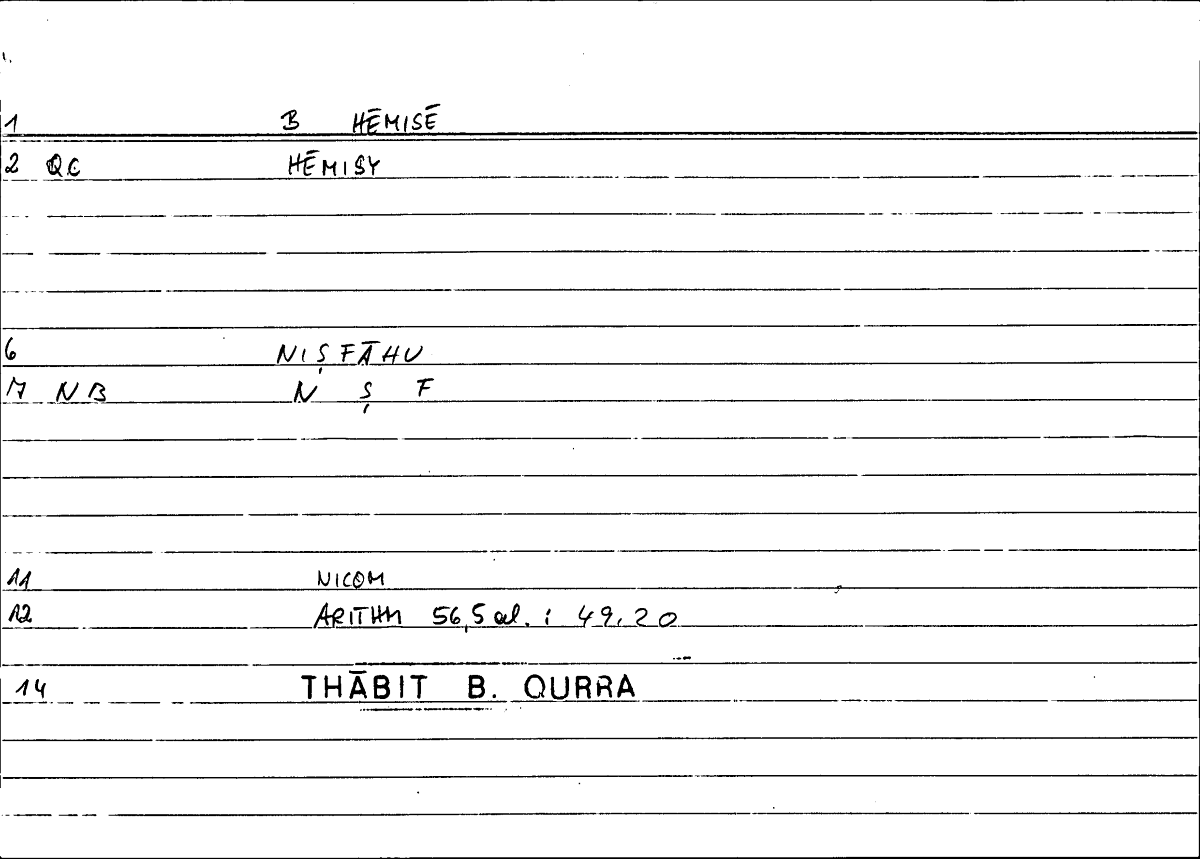 1 B HĒMISĒ
2 QC HĒMISY
6 NIṢFĀHU
7 NB N Ṣ F
11 NICOM
12 ARITHM 56,5 al. : 49,20
14 THĀBIT B. QURRA